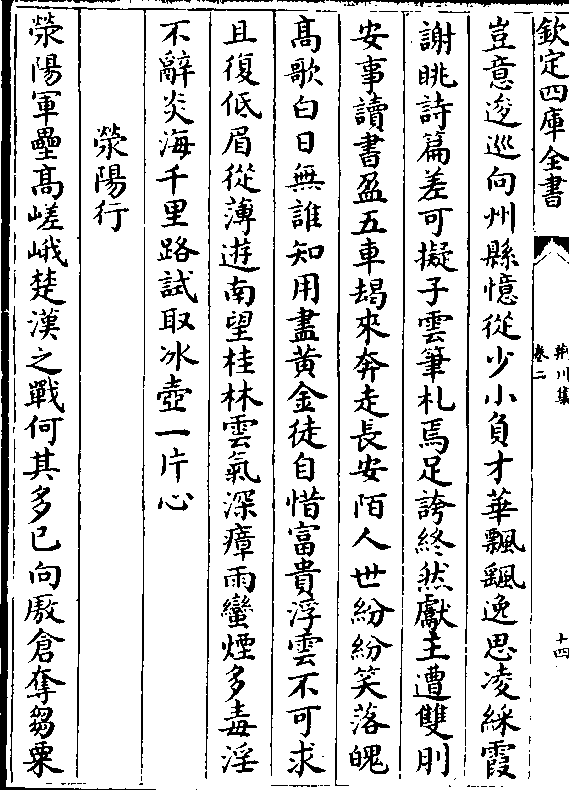 欽定四庫全書
荆川集
卷二
十四
豈意逡巡向州縣憶從少小負才華飄飄逸思凌綵霞
謝眺詩篇差可擬子雲筆札焉足誇終然獻玉遭雙刖
安事讀書盈五車朅來奔走長安陌人世紛紛笑落魄
高歌白日無誰知用盡黄金徒自惜富貴浮雲不可求
且復低眉從薄遊南望桂林雲氣深瘴雨蠻煙多毒淫
不辭炎海千里路試取冰壺一片心
滎陽行
滎陽軍壘高嵯峨楚漢之戰何其多已向敖倉奪芻粟